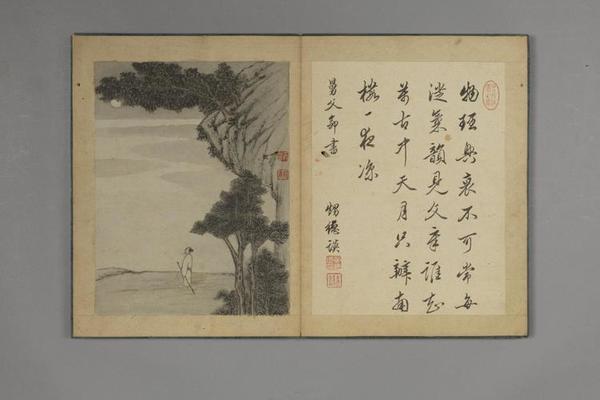 物理興衰不可常每
從氣韻見文章誰知
萬古中天月只辦南
樓一夜涼
舅父命書
甥